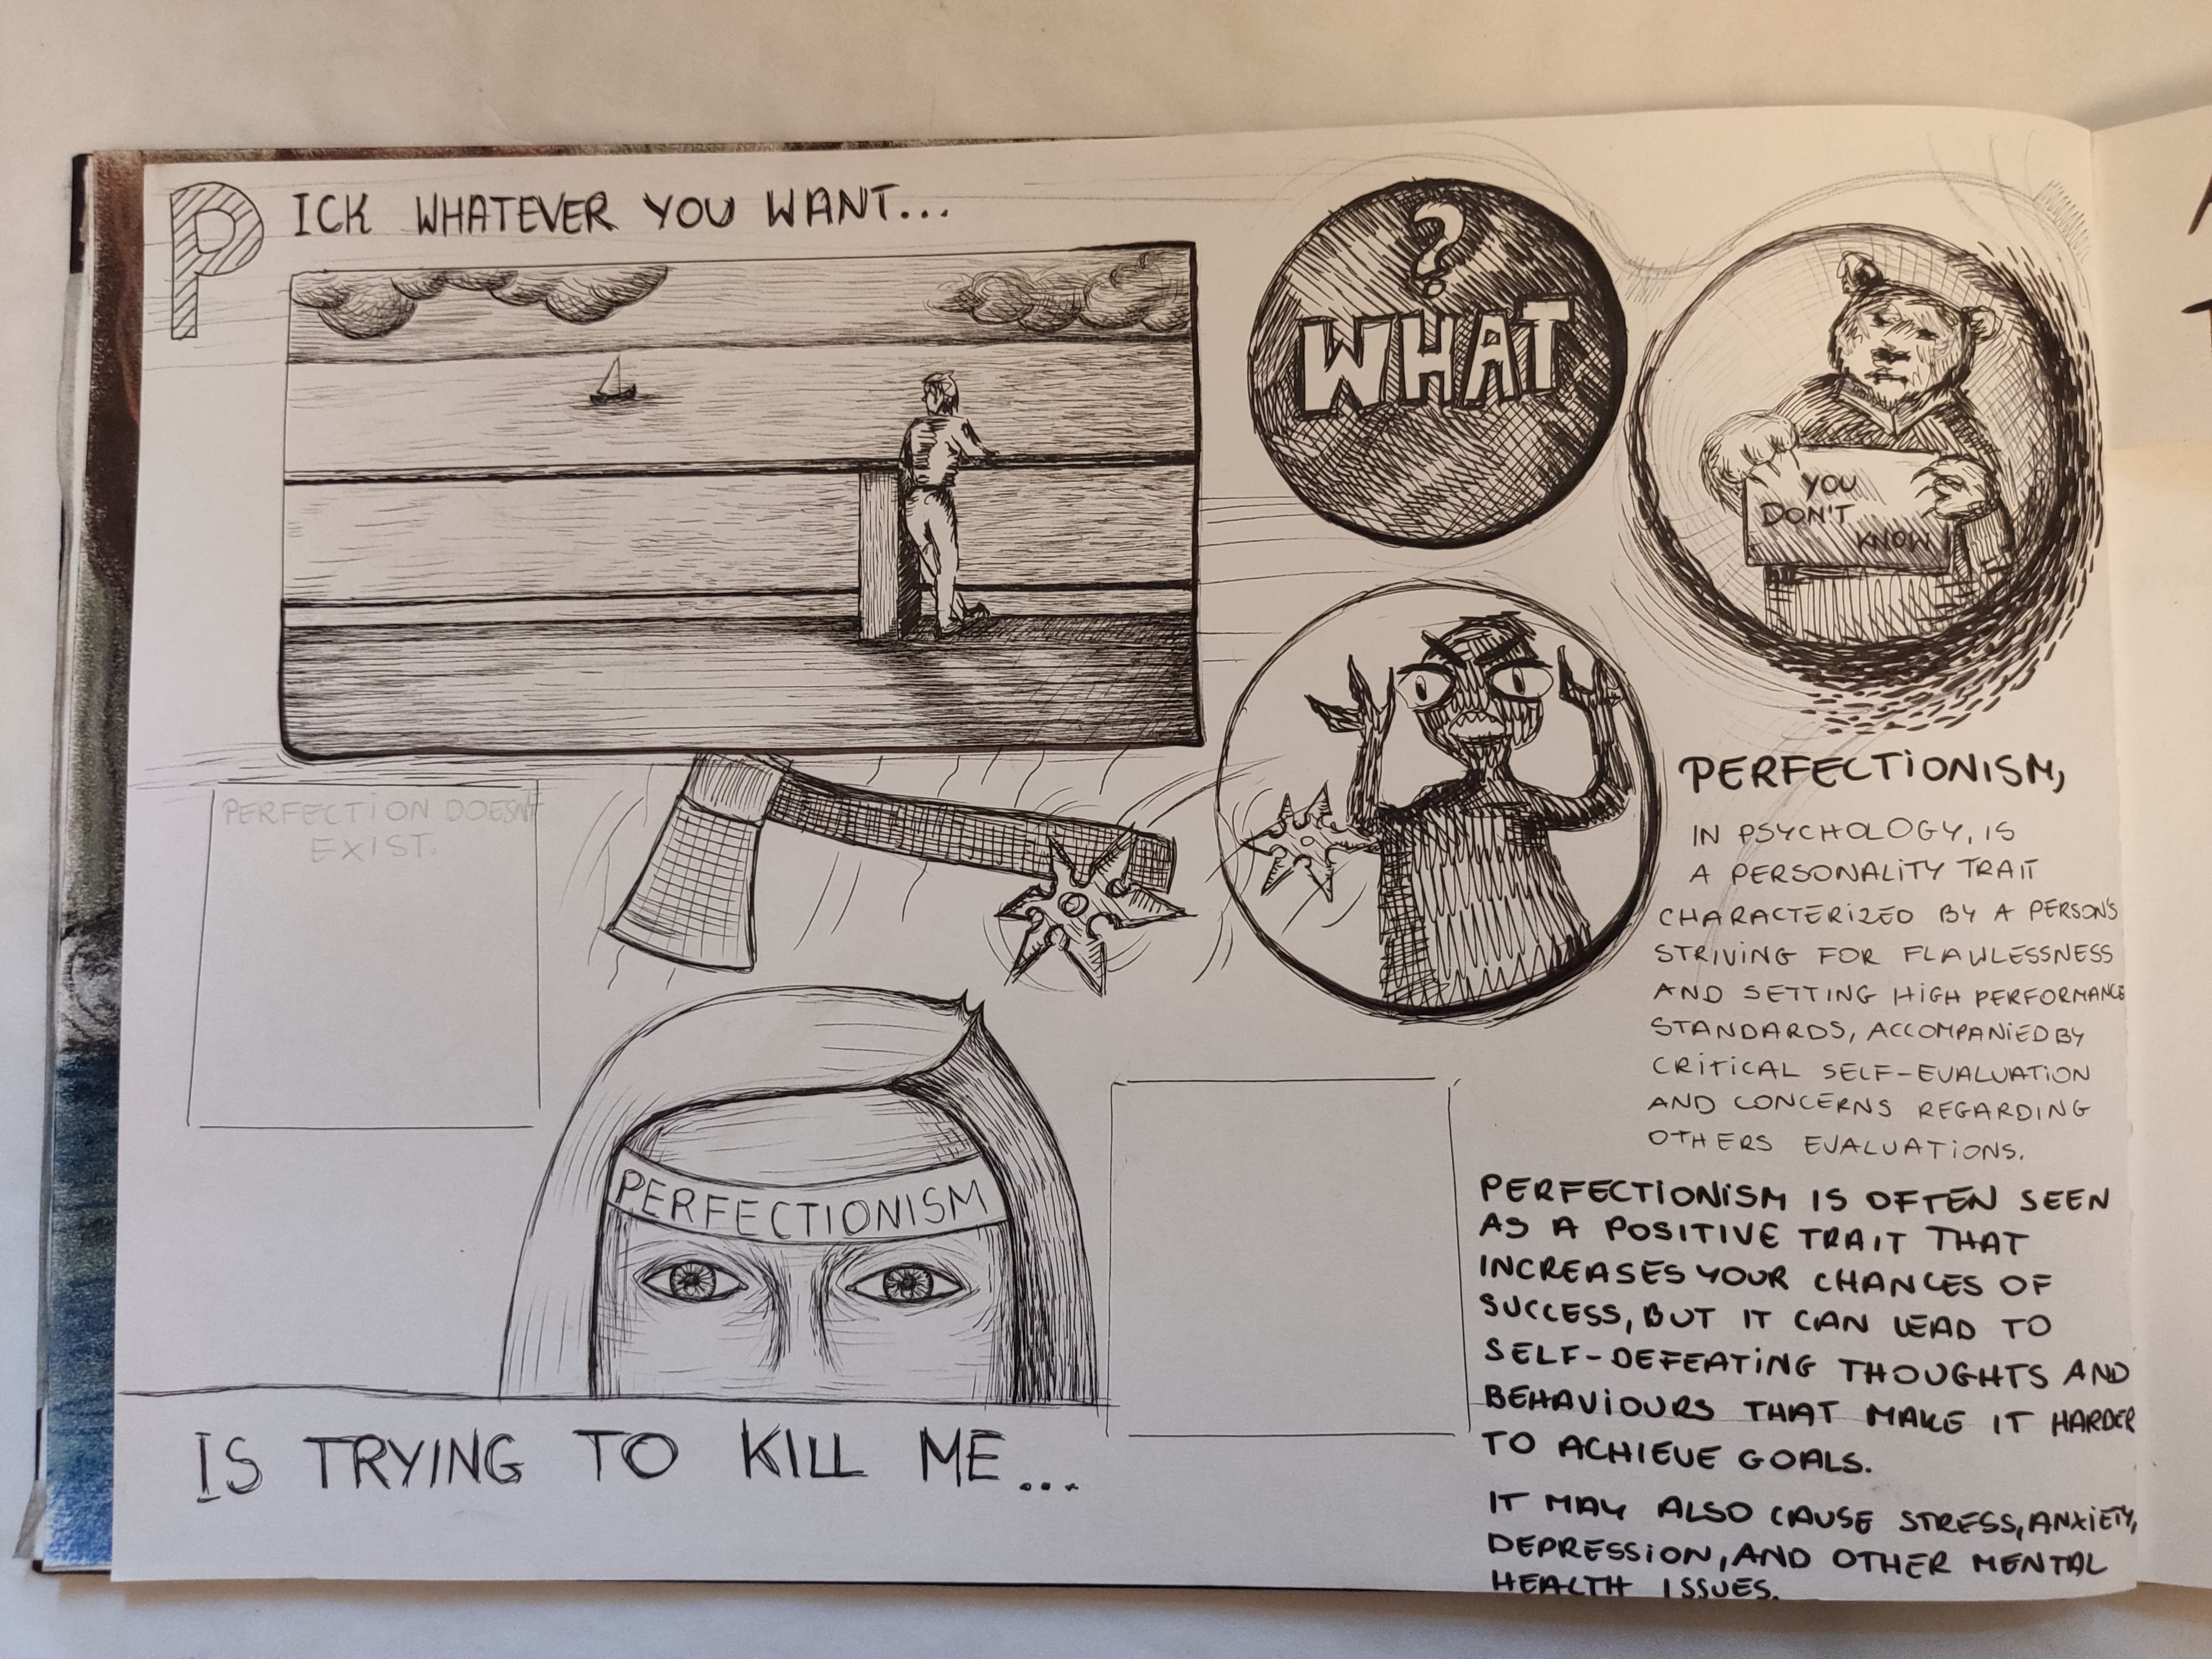 PICK WHATEVER YOU WANT...
?
WHAT
YOU
DON'T
KNOW
PERFECTION DOESN'T
EXIST.
PERFECTIONISM
IS TRYING TO KILL ME...
PERFECTIONISM,
IN PSYCHOLOGY, IS
A PERSONALITY TRAIT
CHARACTERIZED BY A PERSON'S
STRIVING FOR FLAWLESSNESS
AND SETTING HIGH PERFORMANCE
STANDARDS, ACCOMPANIED BY
CRITICAL SELF-EVALUATION
AND CONCERNS REGARDING
OTHERS EVALUATIONS.
PERFECTIONISM IS OFTEN SEEN
AS A POSITIVE TRAIT THAT
INCREASES YOUR CHANCES OF
SUCCESS, BUT IT CAN LEAD TO
SELF-DEFEATING THOUGHTS AND
BEHAVIOURS THAT MAKE IT HARDER
TO ACHIEVE GOALS.
IT MAY ALSO CAUSE STRESS, ANXIETY,
DEPRESSION, AND OTHER MENTAL
HEALTH ISSUES.